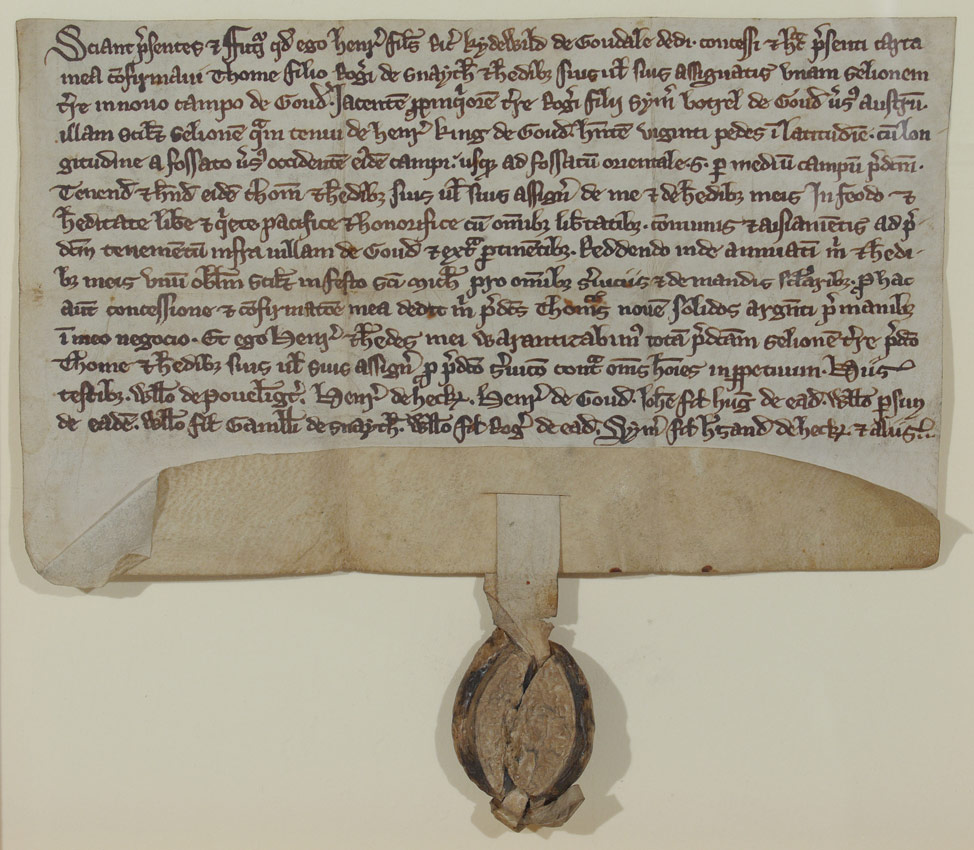 Sciant p̄sentes & Futˀi qd̄ ego henr̄ filˀs Ric̄ kydewild de Goudale dedi · concessi & hac p̄senti carta
mea cōfirmavi Thome filio Rogˀi de snaych̄ & h̄edibȝ suis ul̄ suis assignatis unam selionem
tˀre in novo campo de Goud̄ · Jacentē ꝓpinqˀorē tˀre Rogˀi filii Sym̄ botrel de Goud̄ ūsˀ austrū ·
illam scilȝ selionē qˀm tenui de henr̄ king de Goud̄ · hn̄tē viginti pedes ī latitudīe · cū lon
gitudine a fossato ūsˀ occidentē eiˀdē campi · usqȝ ad fossatū orientale · s · ꝑ mediū campū p̄dcm̄ ·
Tenend̄ & hn̄d eidē thom̄ & h̄edibȝ suis ul̄ suis assigˀn de me & de h̄edibȝ meis In feodo &
h̄editate libˀe & qˀete pacifice & honorifice cū omībȝ lib̄tatibȝ · cōmunis & aisiamētis ad p̄
dcm̄ tenementū infra villam de Goud̄ & extˀ ꝑtinētibȝ · Reddendo inde annuatī m̄ & h̄edi
bȝ meis unū obl̄m scilȝ in festo sc̄i mich̄ pro omībȝ sˀviciis & demandis sclˀaribȝ · ꝓ hac
aut̄ concessione & cōfirmatōē mea dedit m̄ p̄dc̄s Thomas novē solidos argˀnti p̄ manibȝ
ī meo negocio · Et ego Henr̄ & h̄edes mei warantizabimˀ totā p̄dcām selionē tˀre p̄dc̄o
Thome & h̄edibȝ suis ul̄ suis assigˀn ꝓ p̄dc̄o sˀvicō contˀ om̄s hōies in ꝑpetuum · Hiis
testibȝ · Will̄o de pouelīgt̄ · Henr̄ de heck̄ · Henr̄ de Goud̄ · Joh̄e fil̄ huḡ de ead̄ · Will̄o ꝑsun
de eadē · Will̄o fil̄ Gamill̄i de snaych̄ · Will̄o fil̄ Rogˀ de ead̄ · Sym̄ fil̄ de heck̄ · & aliis